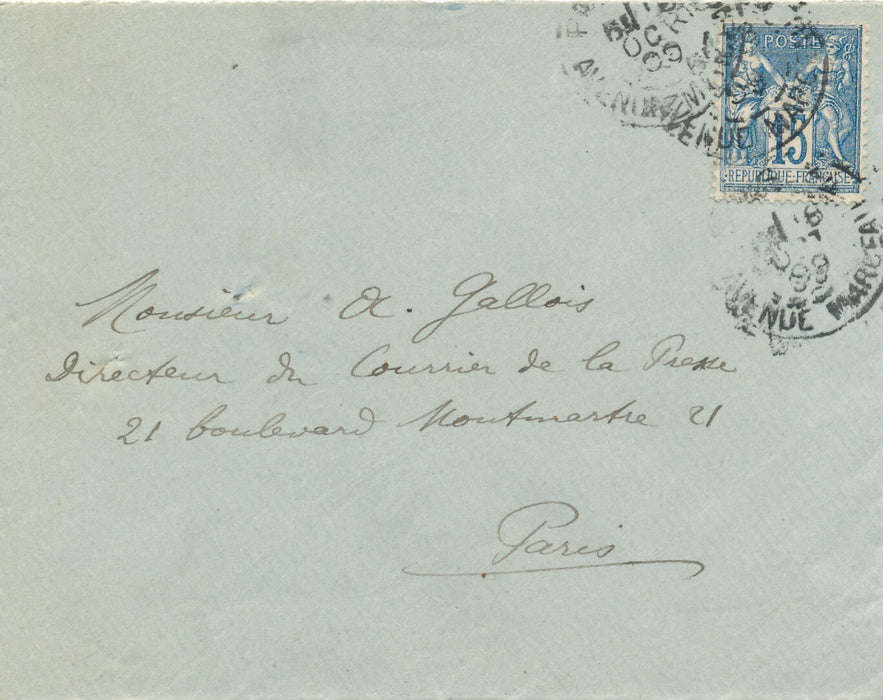 POSTE
15
REPUBLIQUE FRANÇAISE
AVENUE
AVENUE MAR
AVENUE MARCEAU
Monsieur A. Gallois
Directeur du Courrier de la Presse
21 boulevard Montmartre 21
Paris